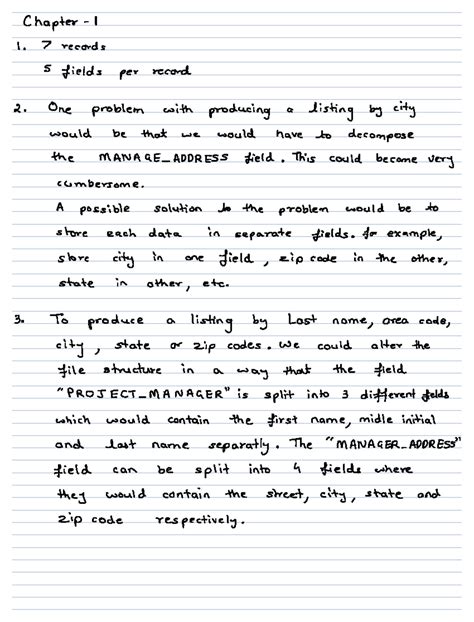 Chapter - 1
1. 7 records
5 fields per record
2. One problem with producing a listing by city
would be that we would have to decompose
the MANAGE_ADDRESS field. This could become very
cumbersome.
A possible solution to the problem would be to
store each data in separate fields. for example,
store city in one field, zip code in the other,
state in other, etc.
3. To produce a listing by Last name, area code,
city, state or zip codes. We could alter the
file structure in a way that the field
"PROJECT_MANAGER" is split into 3 different fields
which would contain the first name, midle initial
and last name separatly. The "MANAGER_ADDRESS"
field can be split into 4 fields where
they would contain the street, city, state and
zip code respectively.